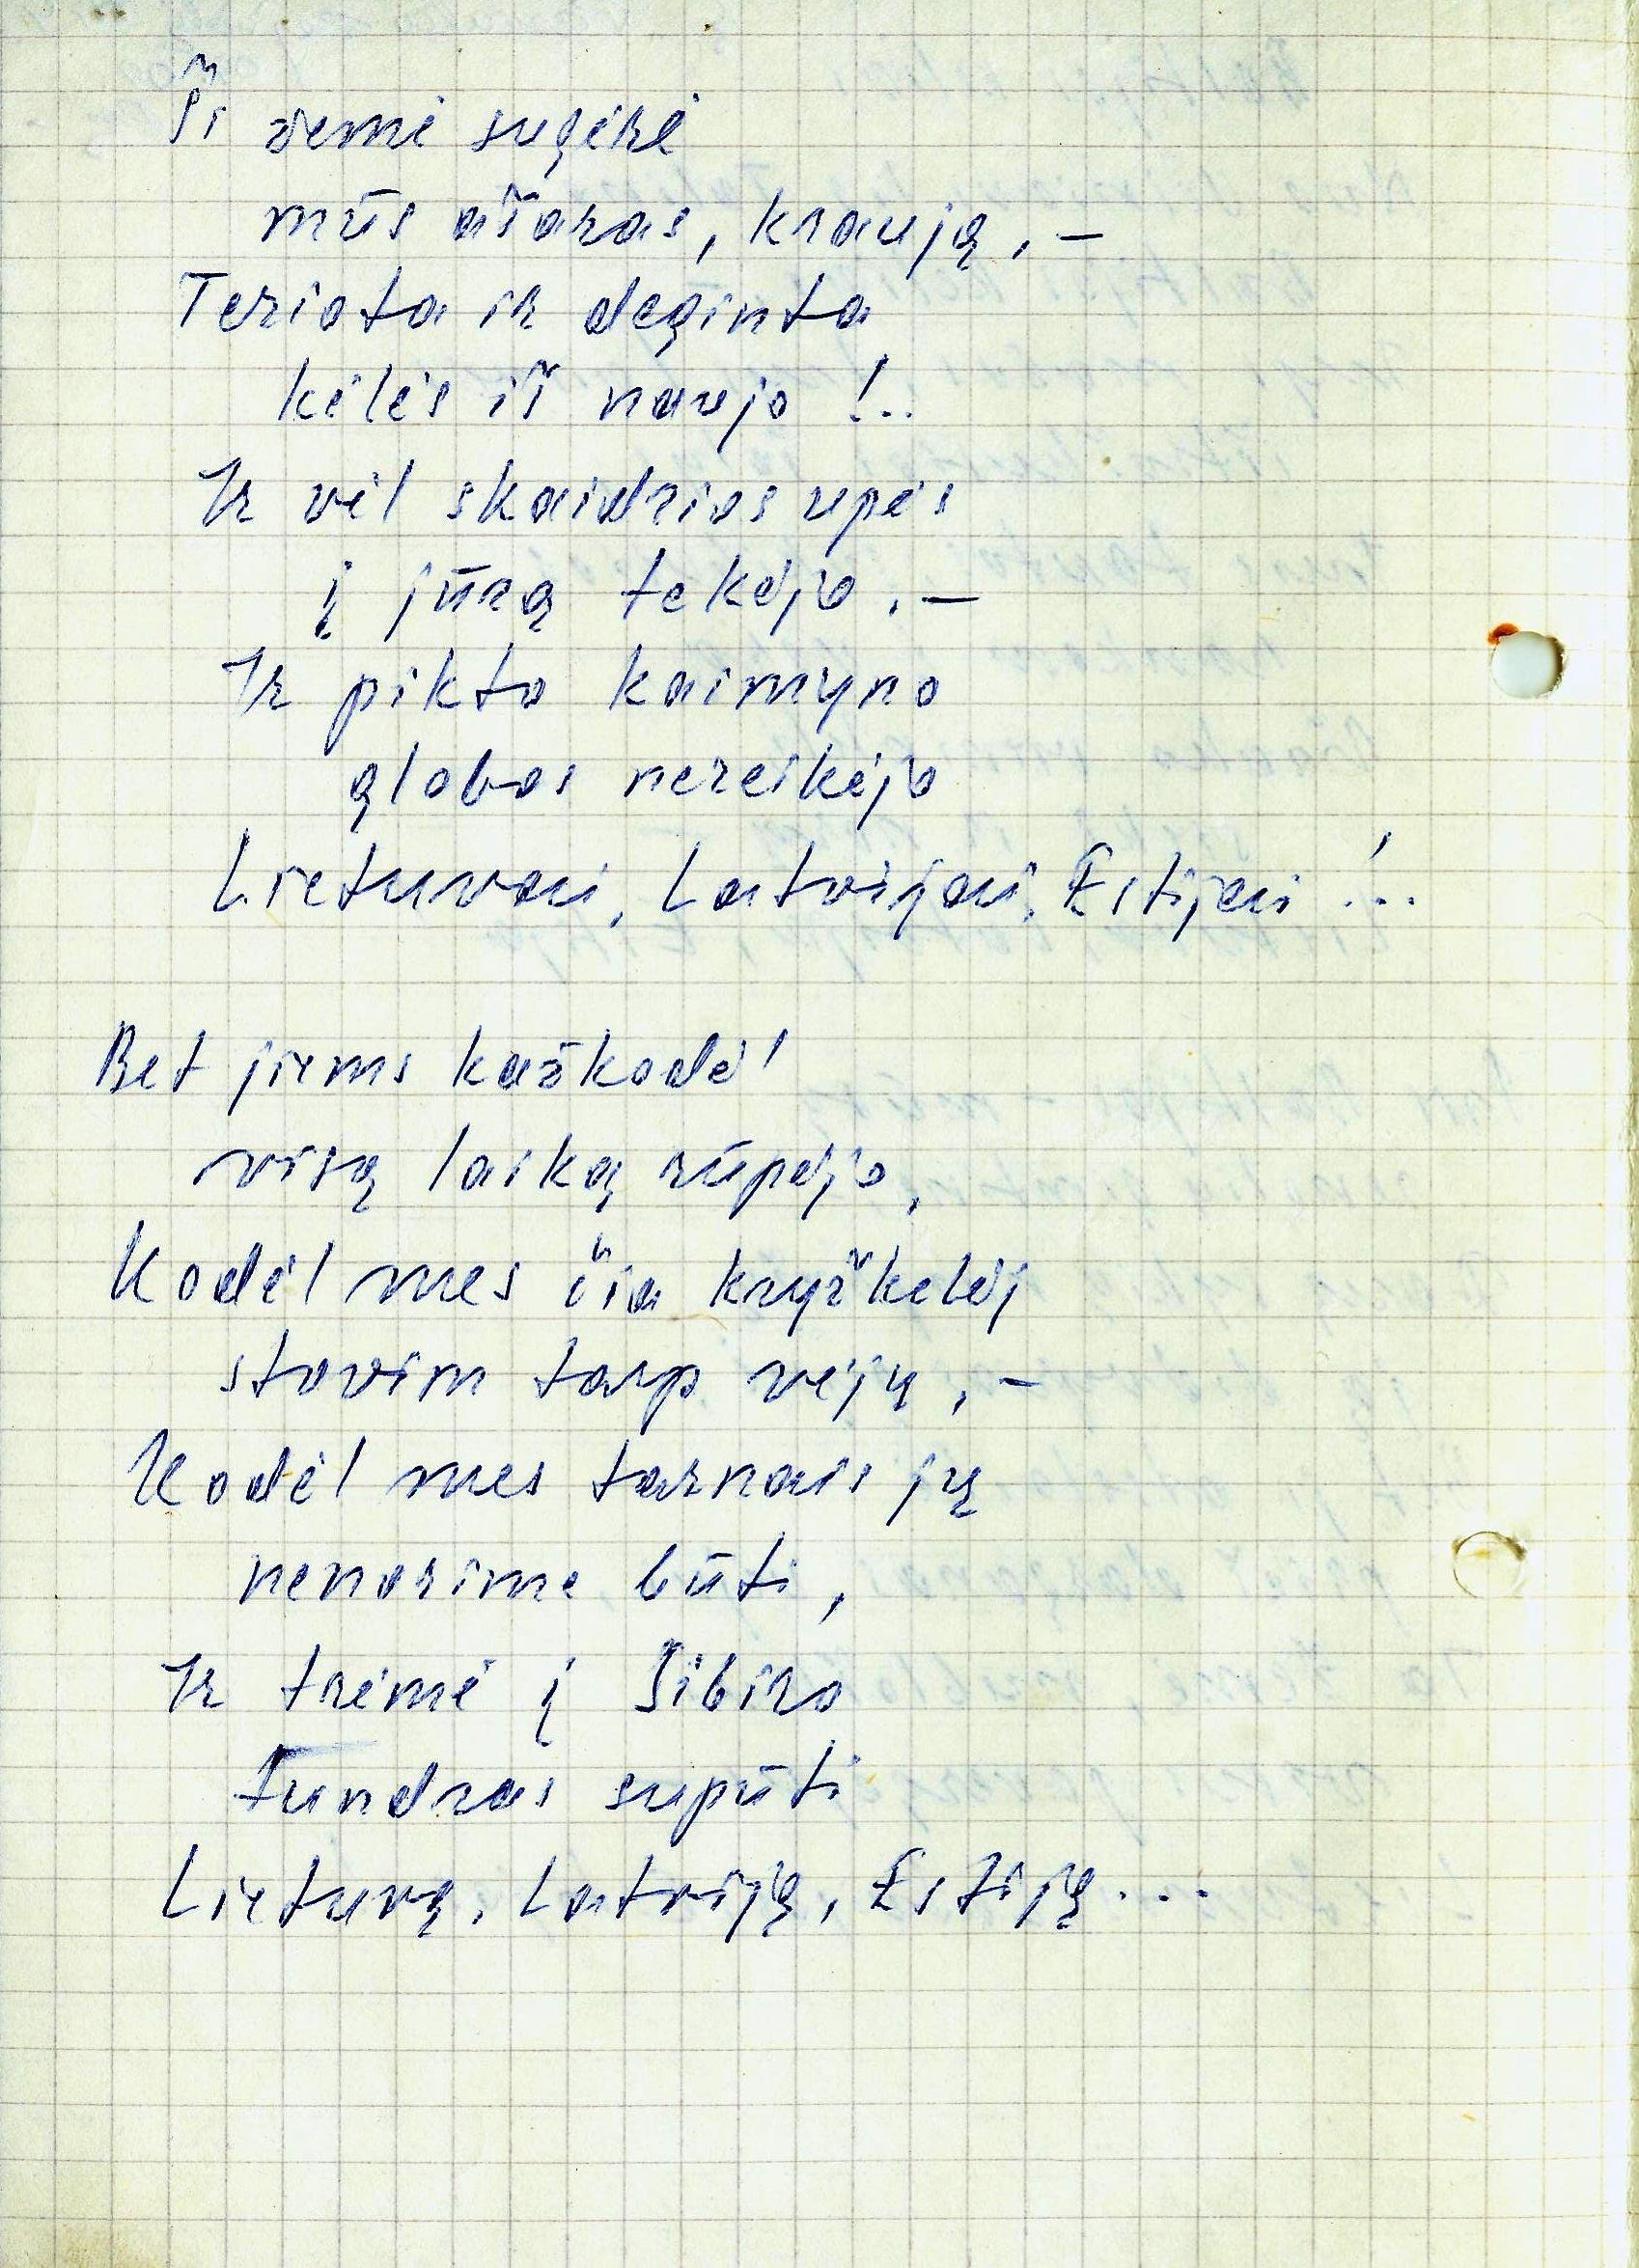 Ši žemė sugėrė
mūs ašaras, kraują, –
Teriota ir deginta
kėlės iš naujo!..
Ir vėl skaidrios upės
į jūrą tekėjo, –
Ir pikto kaimyno
globos nereikėjo
Lietuvai, Latvijai, Estijai!..
Bet jiems kažkodėl
visą laiką rūpėjo,
Kodėl mes čia kryžkelėj
stovim tarp vėjų, –
Kodėl mes tarnais jų
nenorime būti,
Ir trėmė į Sibiro
tundras supūti
Lietuvą, Latviją, Estiją...